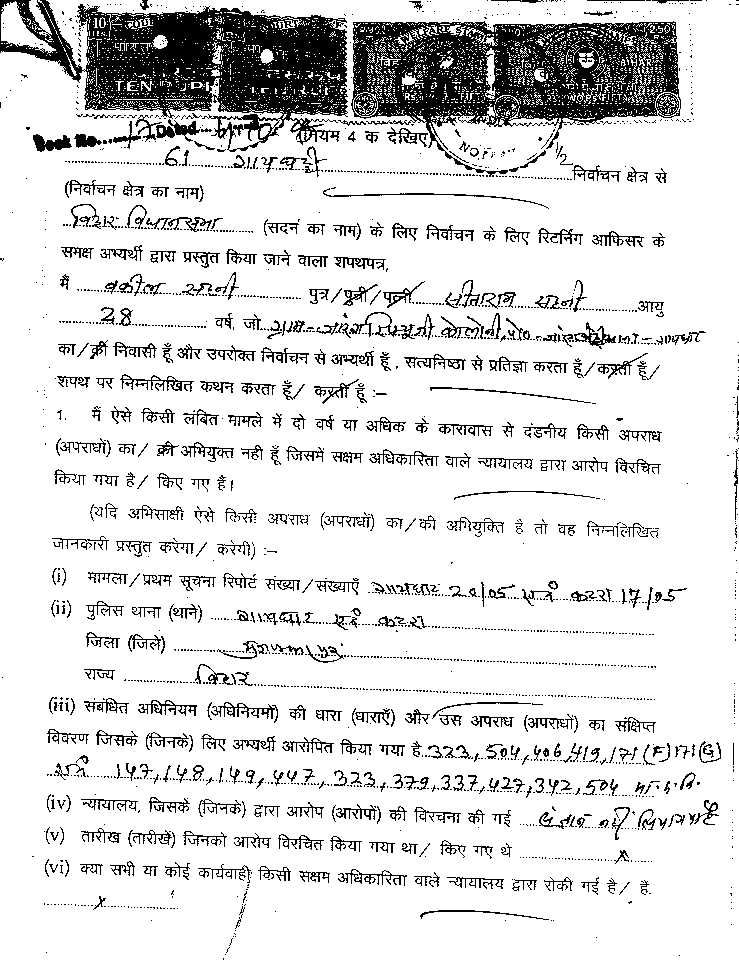 TEN RUPEES
Book No. 17 Dated (नियम 4 क देखिए)
61 गायघाट निर्वाचन क्षेत्र से
(निर्वाचन क्षेत्र का नाम)
बिहार विधानसभा (सदन का नाम) के लिए निर्वाचन के लिए रिटर्निग आफिसर के
समक्ष अभ्यर्थी द्वारा प्रस्तुत किया जाने वाला शपथपत्र,
मैं वकील सहनी पुत्र/पुत्री/पत्नी सीताराम सहनी आयु
28 वर्ष, जो ग्राम-
का/की निवासी हूँ और उपरोक्त निर्वाचन से अभ्यर्थी हूँ, सत्यनिष्ठा से प्रतिज्ञा करता हूँ/करती हूँ/
शपथ पर निम्नलिखित कथन करता हूँ/ करती हूँ :–
1. मैं ऐसे किसी लंबित मामले में दो वर्ष या अधिक के कारावास से दंडनीय किसी अपराध
(अपराधों) का/ की अभियुक्त नही हूँ जिसमें सक्षम अधिकारिता वाले न्यायालय द्वारा आरोप विरचित
किया गया है/ किए गए हैं।
(यदि अभिसाक्षी ऐसे किसी अपराध (अपराधों) का/की अभियुक्ति है तो वह निम्नलिखित
जानकारी प्रस्तुत करेगा/ करेगी) :–
(i) मामला/प्रथम सूचना रिपोर्ट संख्या/संख्याएँ गायघाट 20/05 एवं कटरा 17/05
(ii) पुलिस थाना (थाने) गायघाट एवं कटरा
जिला (जिले) मुजफ्फरपुर
राज्य बिहार
(iii) संबंधित अधिनियम (अधिनियमों) की धारा (धाराएँ) और उस अपराध (अपराधों) का संक्षिप्त
विवरण जिसके (जिनके) लिए अभ्यर्थी आरोपित किया गया है 323, 504, 406, 419, 171(F) 171(G)
एवं 147, 148, 149, 447, 323, 379, 337, 427, 342, 504 भा.द.वि.
(iv) न्यायालय, जिसके (जिनके) द्वारा आरोप (आरोपों) की विरचना की गई संज्ञान नहीं लिया गया है
(v) तारीख (तारीखें) जिनको आरोप विरचित किया गया था/ किए गए थे X
(vi) क्या सभी या कोई कार्यवाही किसी सक्षम अधिकारिता वाले न्यायालय द्वारा रोकी गई है/ हैं.
X